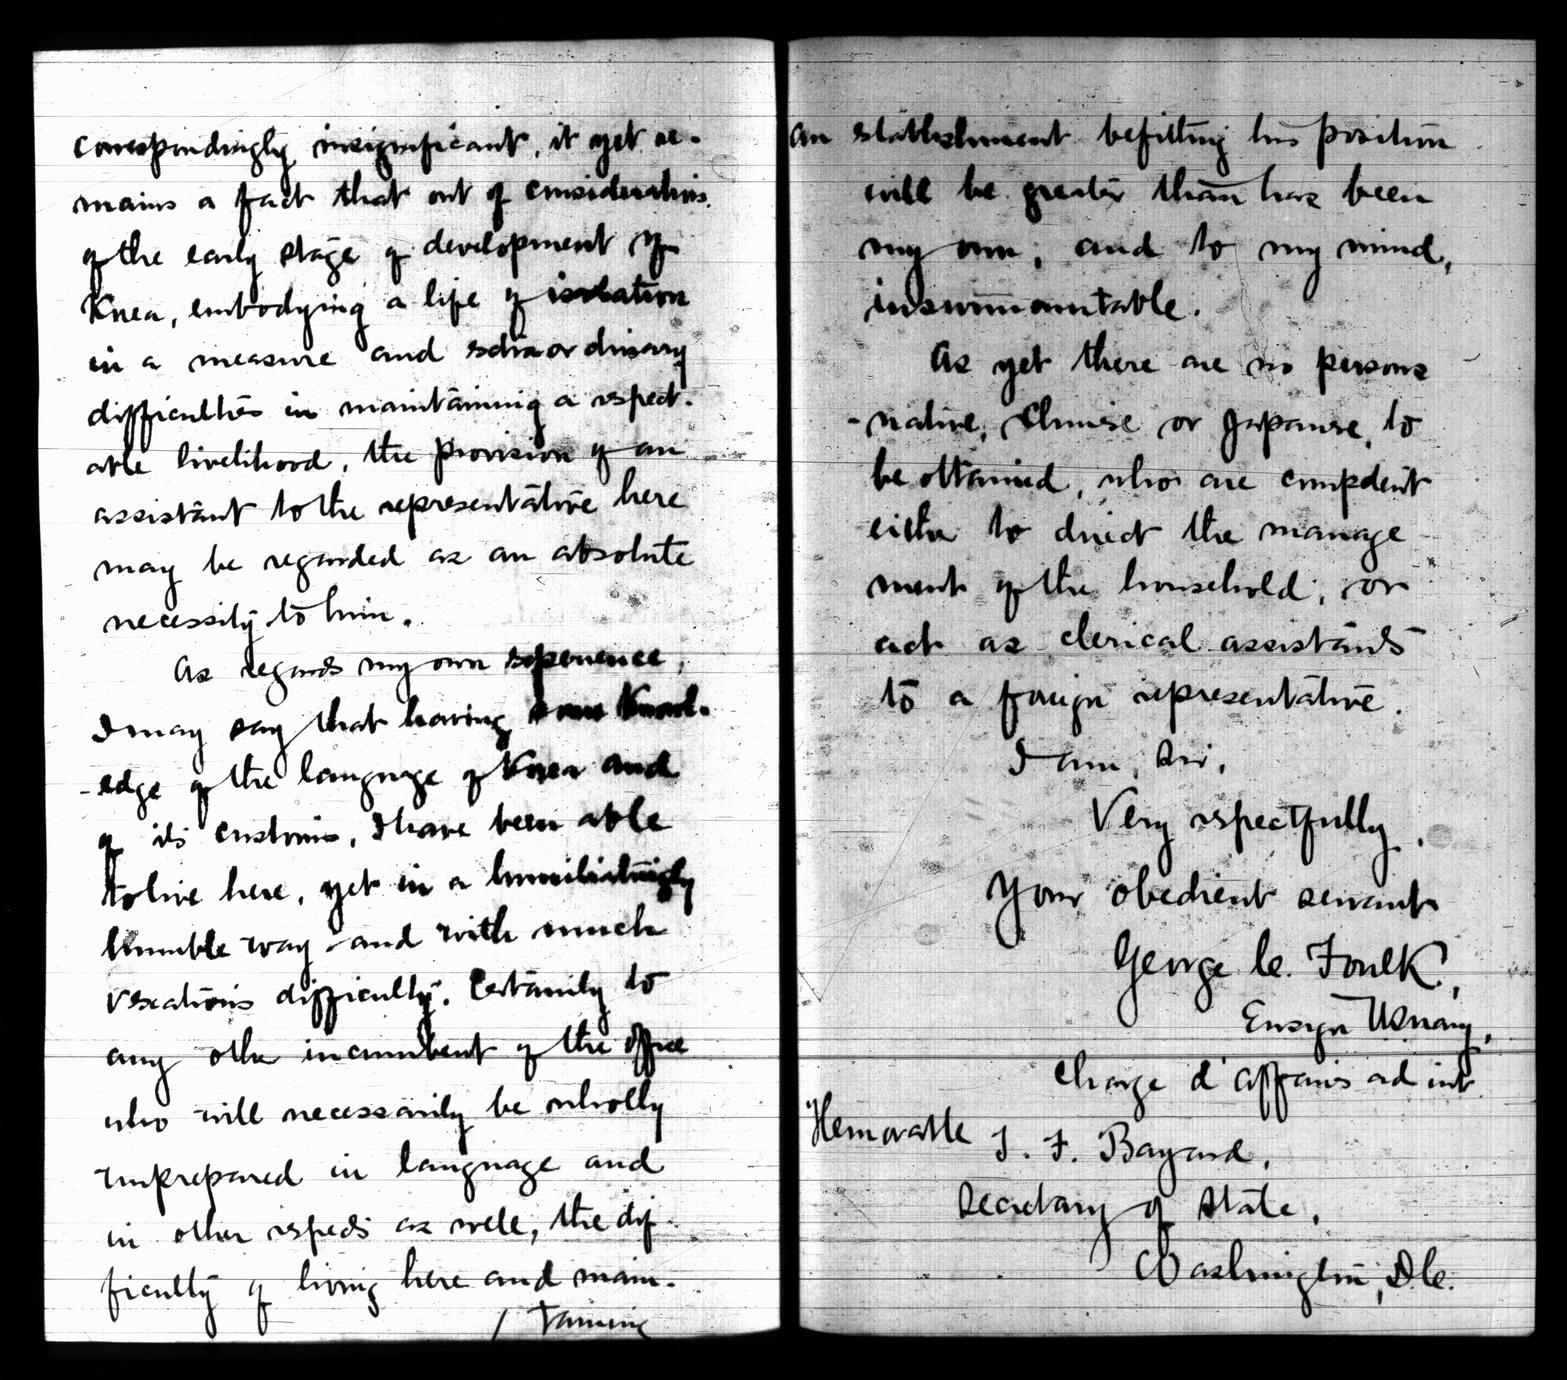 correspondingly insignificant, it yet re-
mains a fact that out of consideration
of the early stage of development of
Korea, embodying a life of isolation
in a measure and extraordinary
difficulties in maintaining a respect-
able livelihood, the provision of an
assistant to the representative here
may be regarded as an absolute
necessity to him.
As regards my own experience,
I may say that having some knowl-
-edge of the language of Korea and
of its customs, I have been able
to live here, yet in a humiliatingly
humble way and with much
vexatious difficulty. Certainly to
any other incumbent of the office
who will necessarily be wholly
unprepared in language and
in other respects as well, the dif-
ficulty of living here and main-
/ taining
an establishment befitting his position
will be greater than has been
my own; and to my mind,
insurmountable.
As yet there are no persons
-native, Chinese or Japanese, to
be obtained, who are competent
either to direct the manage
ment of the household, or
act as clerical assistants
to a foreign representative.
I am, Sir,
Very respectfully,
Your obedient servant
George C. Foulk,
Ensign US Navy,
Charge d'affaires ad int.
Honorable T. F. Bayard,
Secretary of State,
Washington, D.C.